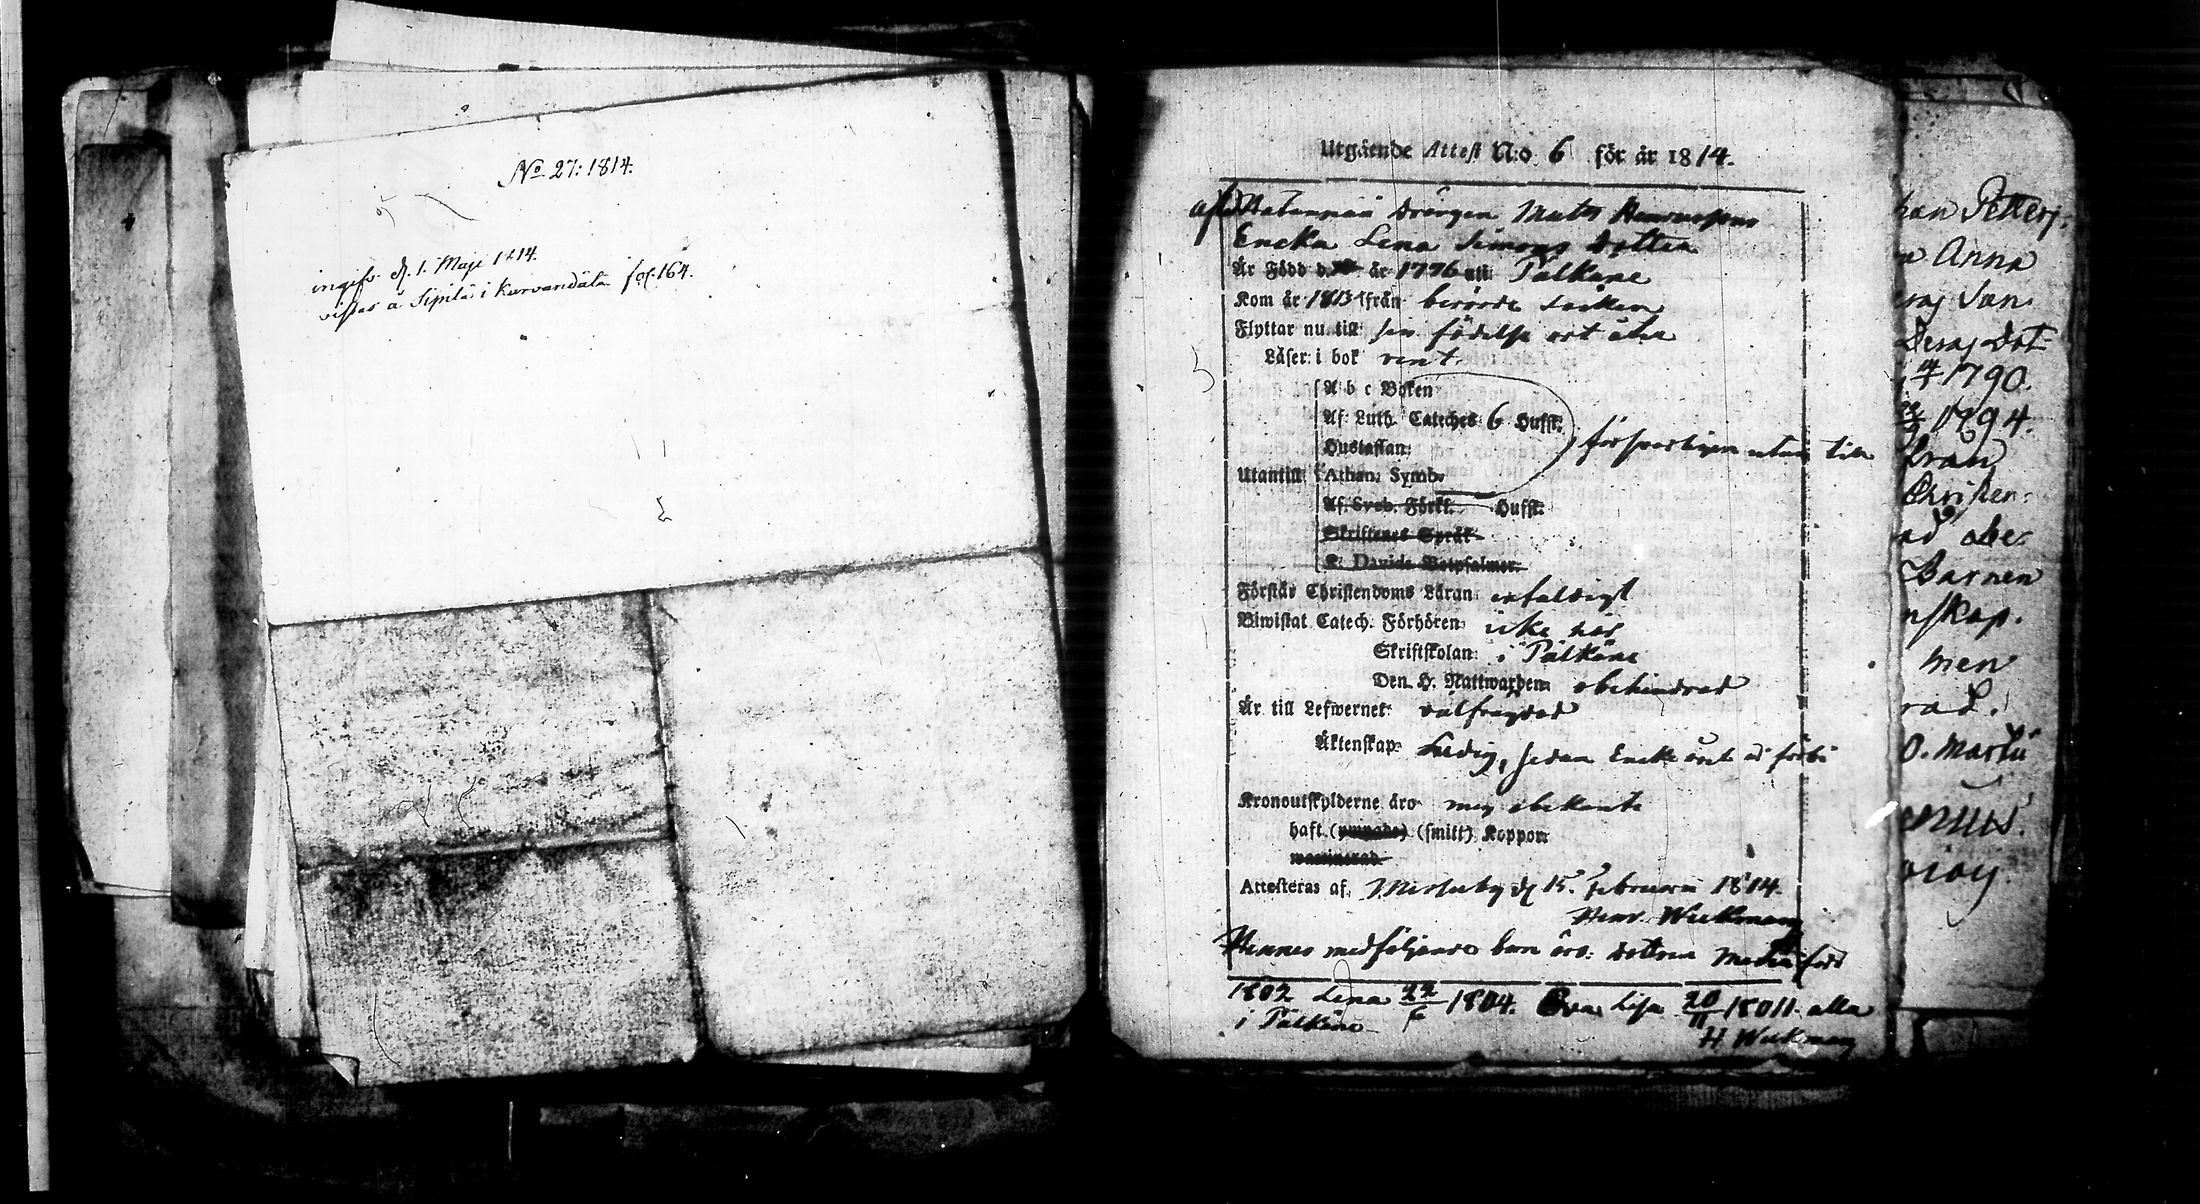 No 27: 1814.
ingifv. d. 1. Maji 1814.
vistas å Sipilä i Kurvandäla fol. 164.
Utgående Attest N:o 6 för år 1814.
afl. drängen Mats
Encka Lena Simons Dotter
Är Född d. år 1776 uti Pälkäne
Kom år 1813 ifrån berörde Socken
Flyttar nu till sin födelse ort åter
Läser: i bok rent
A b c Boken
Af Luth. Cateches 6 Hufst.
Hustaflan
Utantill: Athan. Symb.
försvarligen utan till
Af Sveb. Förkl. Hufst.
Skriftenes Språk
K. Davids Botpsalmer.
Förstår Christendoms Läran: enfaldigt
Biwistat Catech. Förhören: icke här
Skriftskolan: i Pälkäne
Den H. Nattwarden: obehindrad
Är till Lefwernet: välfregdad
Äktenskap: Ledig, sedan Encke året är förbi
Kronoutskylderne äro mig obekante
haft (ympade) (smitt) Koppor
waccinerad
Attesteras af, d. 15. Februarii 1814.
Henr. Wickman
Hennes medföljande barn äro: dottren Maria född
1802 Lena 22/ 1804. Eva Lisa 20/11 18011. alla
i Pälkäne
H Wickman
han Petters.
Anna
Son
Deras Dot-
1790.
1794.
från
Christen-
Barnen
nskap.
men
rad.
0. Martii